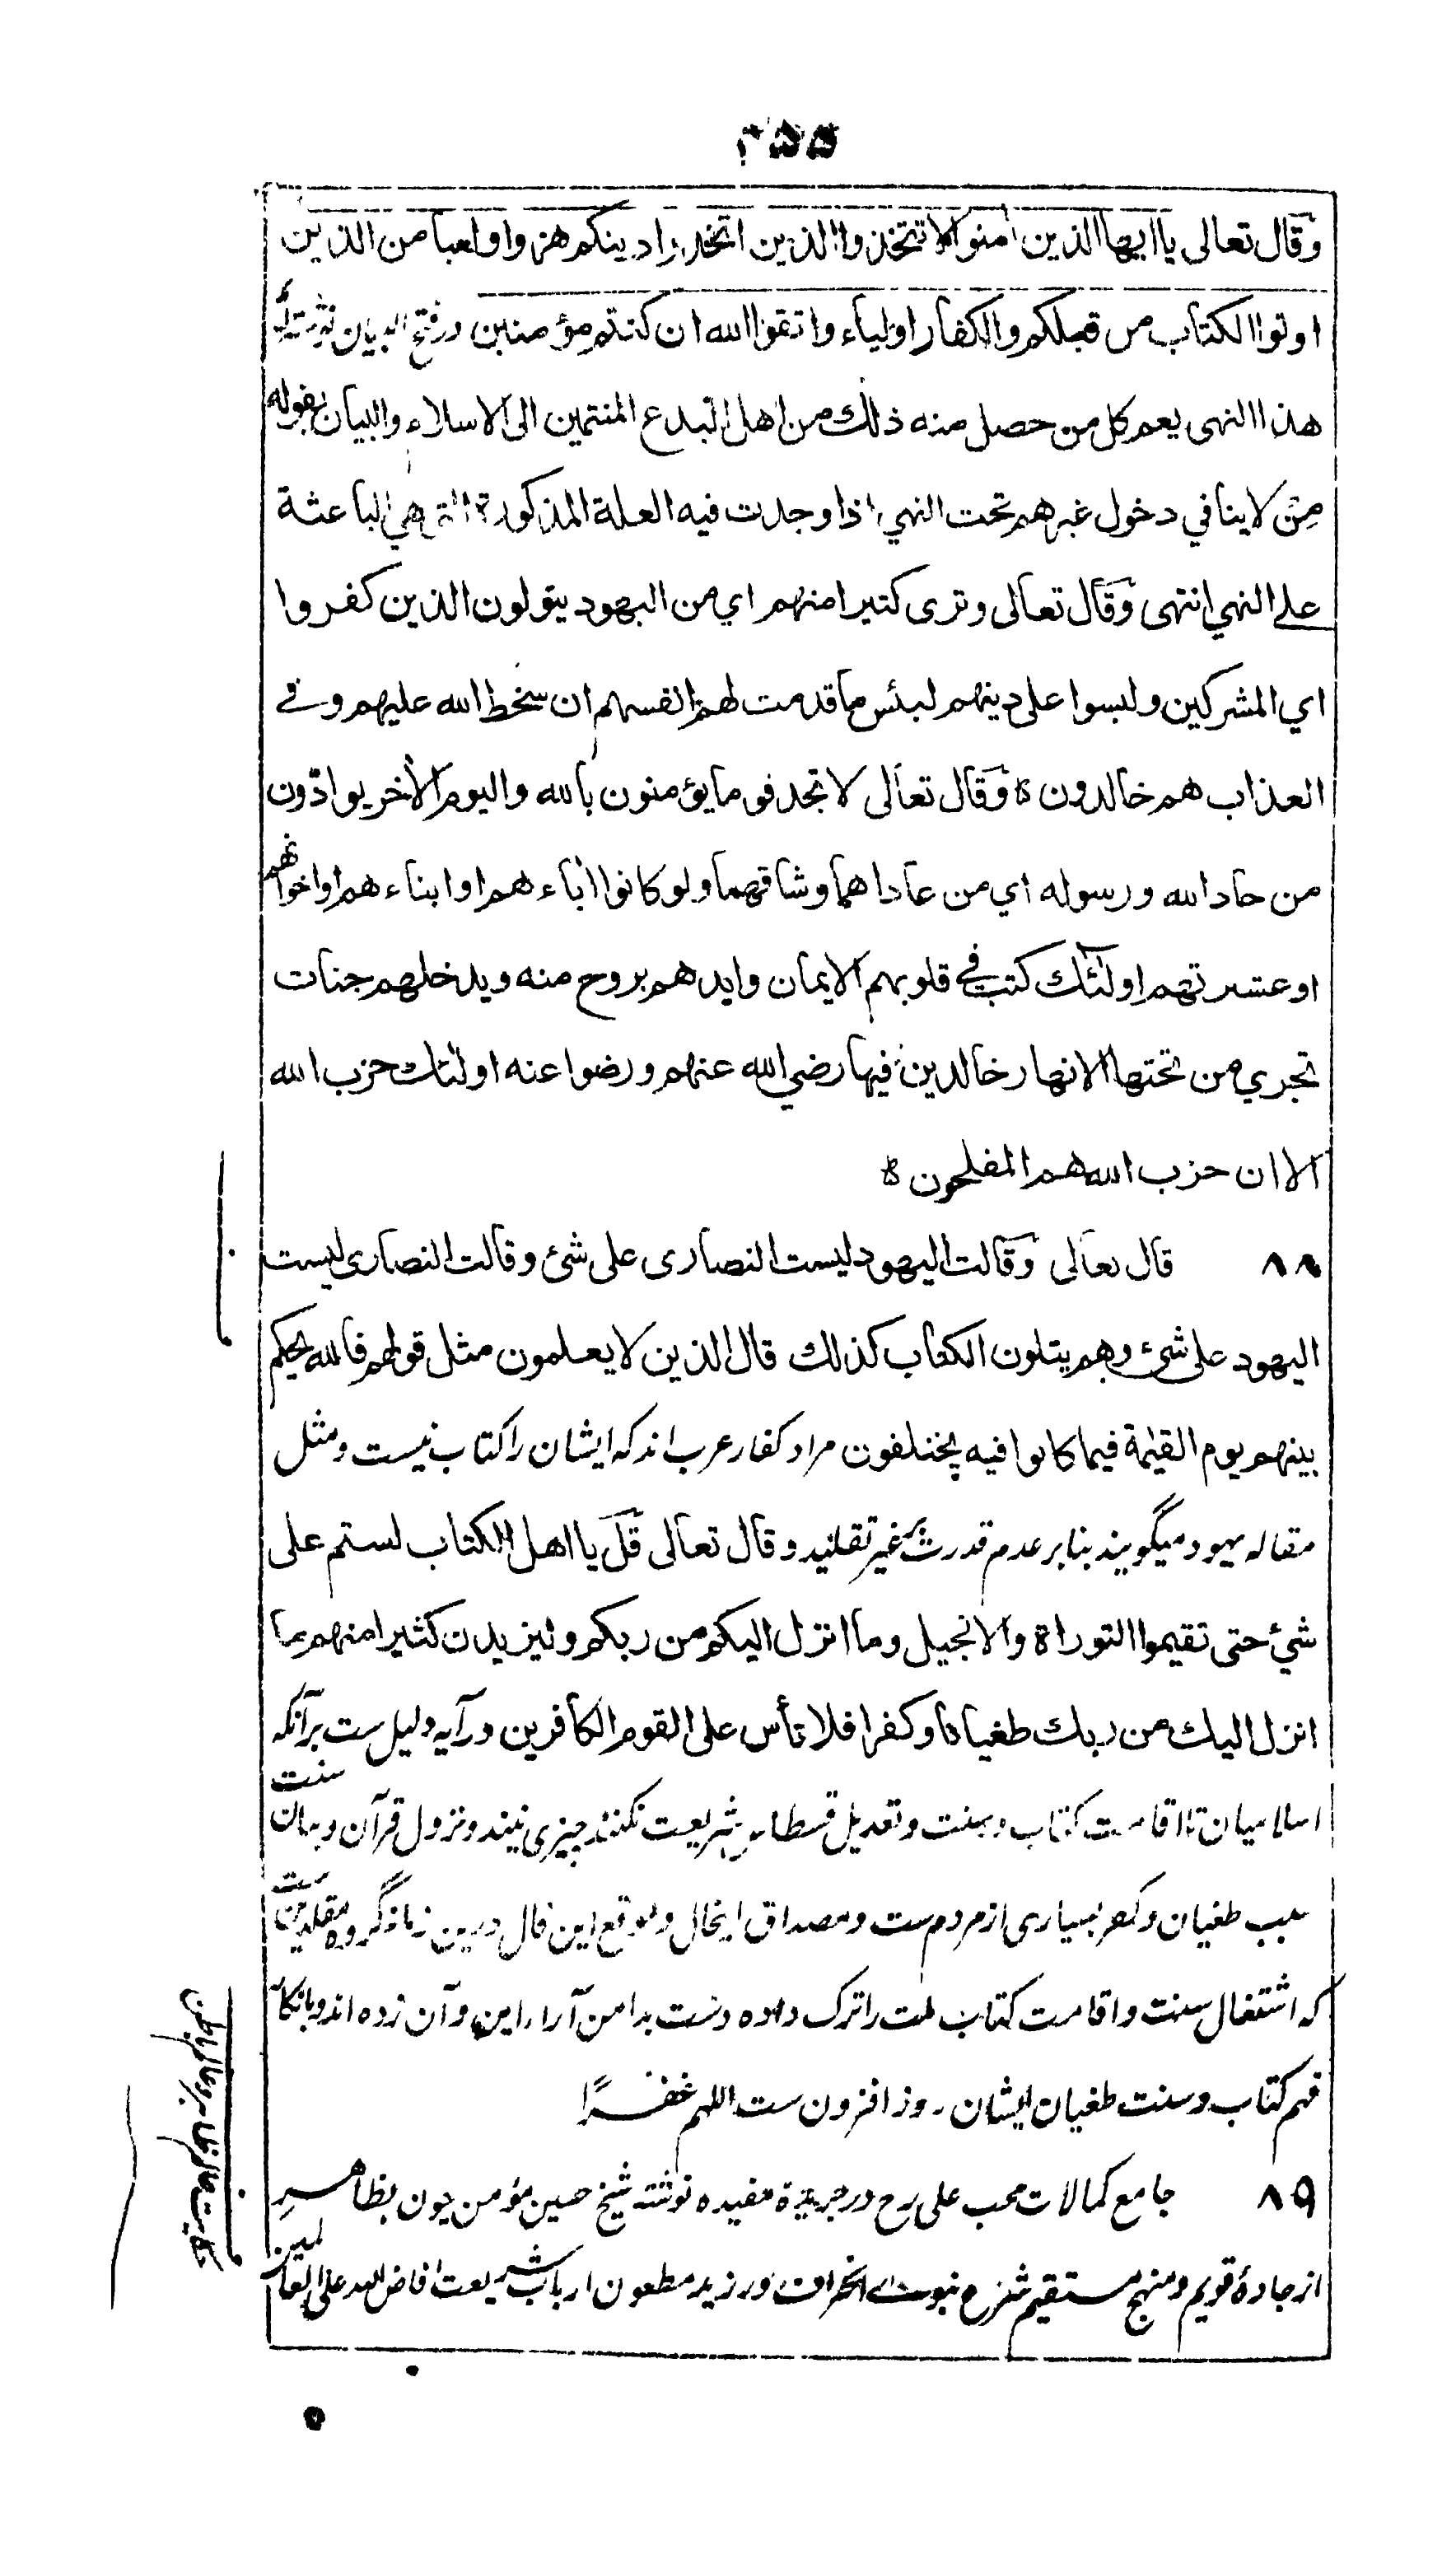 ۲۵۵
وقال تعالى يا ايها الذين امنوا لا تتخذوا الذين اتخذوا دينكم هزوا ولعبا من الذين
اوتوا الكتاب من قبلكم والكفار اولياء واتقوا الله ان كنتم مؤمنين در فتح البيان نوشته
هذا النهى يعم كل من حصل منه ذلك من اهل البدع المنتمين الى الاسلام والبيان بقوله
من لا ينافي دخول غيرهم تحت النهي اذا وجدت فيه العلة المذكورة التي هي الباعثة
على النهي انتهى وقال تعالى وترى كثيرا منهم اي من اليهود يتولون الذين كفروا
اي المشركين وليسوا على دينهم لبئس ما قدمت لهم انفسهم ان سخط الله عليهم وفي
العذاب هم خالدون ه وقال تعالى لا تجد قوما يؤمنون بالله واليوم الاخر يوادّون
من حاد الله ورسوله اي من عاداهما وشاقهما ولو كانوا اباءهم او ابناءهم او اخوانهم
او عشيرتهم اولئك كتب في قلوبهم الايمان وايدهم بروح منه ويدخلهم جنات
تجري من تحتها الانهار خالدين فيها رضي الله عنهم ورضوا عنه اولئك حزب الله
الا ان حزب الله هم المفلحون ه
۸۸ قال تعالى وقالت اليهود ليست النصارى على شئ وقالت النصارى ليست
اليهود على شئ وهم يتلون الكتاب كذلك قال الذين لا يعلمون مثل قولهم فالله يحكم
بينهم يوم القيمة فيما كانوا فيه يختلفون مراد كفار عرب اند كه ايشان را كتاب نيست ومثل
مقاله يهود ميگويند بنا بر عدم قدرت بر غير تقليد وقال تعالى قل يا اهل الكتاب لستم على
شيء حتى تقيموا التوراة والانجيل وما انزل اليكم من ربكم وليزيدن كثيرا منهم ما
انزل اليك من ربك طغيانا وكفرا فلا تأس على القوم الكافرين در آيه دليل ست بر آنكه
اسلاميان تا اقامت كتاب وسنت وتعديل قسطاس شريعت نكنند چيزى نيند ونزول قرآن وبيان سنت
سبب طغيان وكفر بسيارى از مردم ست ومصداق اينحال وموقع اين قال درين زمانه گروه مقلدين ست
كه اشتغال سنت واقامت كتاب ملت را ترك داده دست بدامن آراء اين وآن زده اند وبا نكار
فهم كتاب وسنت طغيان ايشان روز افزون ست اللهم غفرًا
۸۹ جامع كمالات محب على رح در جريده مفيده نوشته شيخ حسين مؤمن چون بظاهر
از جادۀ قويم ومنهج مستقيم شرع نبوى انحراف ورزيد مطعون ارباب شريعت افاض الله على العالمين